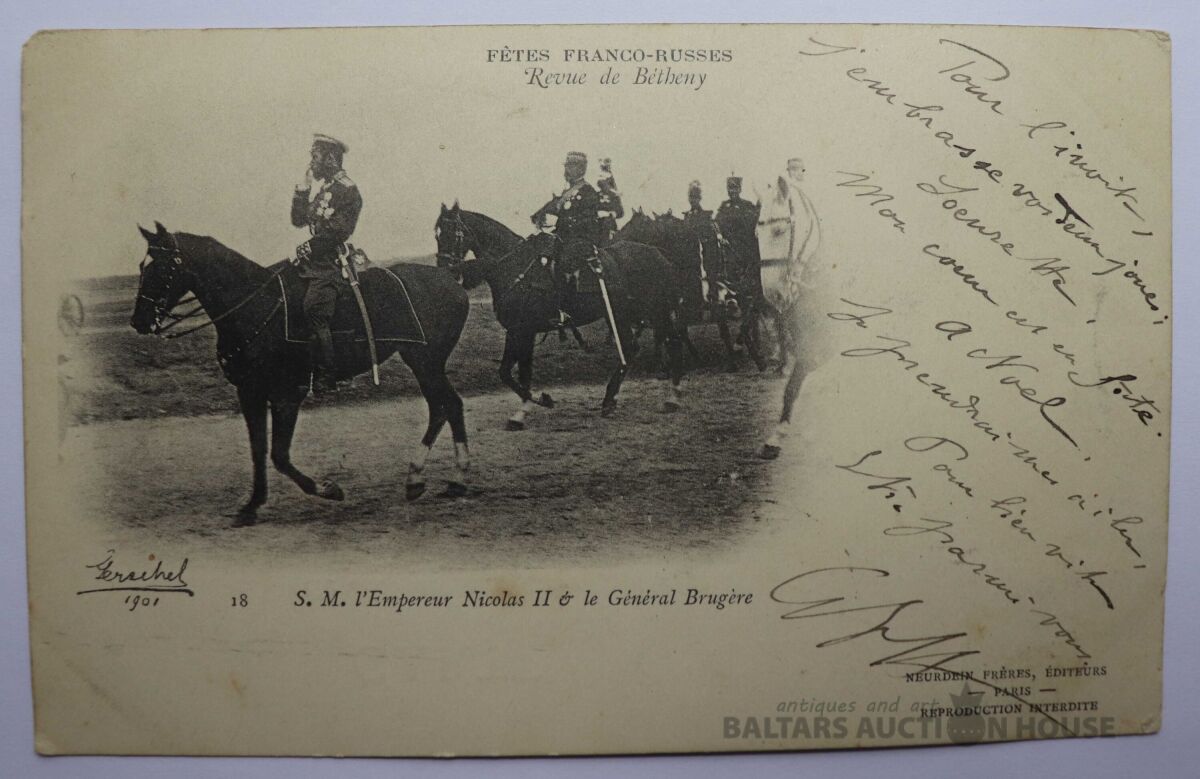 FÊTES FRANCO-RUSSES
Revue de Bétheny
J'embrasse vos deux joues,
Pour l'invit,
Mon cœur est en fête.
A Noël
Je prendrai mes ailes,
Pour bien vite
être parmi vous
Gerschel
1901
18 S. M. l'Empereur Nicolas II & le Général Brugère
NEURDEIN FRÈRES, ÉDITEURS
— PARIS —
REPRODUCTION INTERDITE
antiques and art
BALTARS AUCTION HOUSE